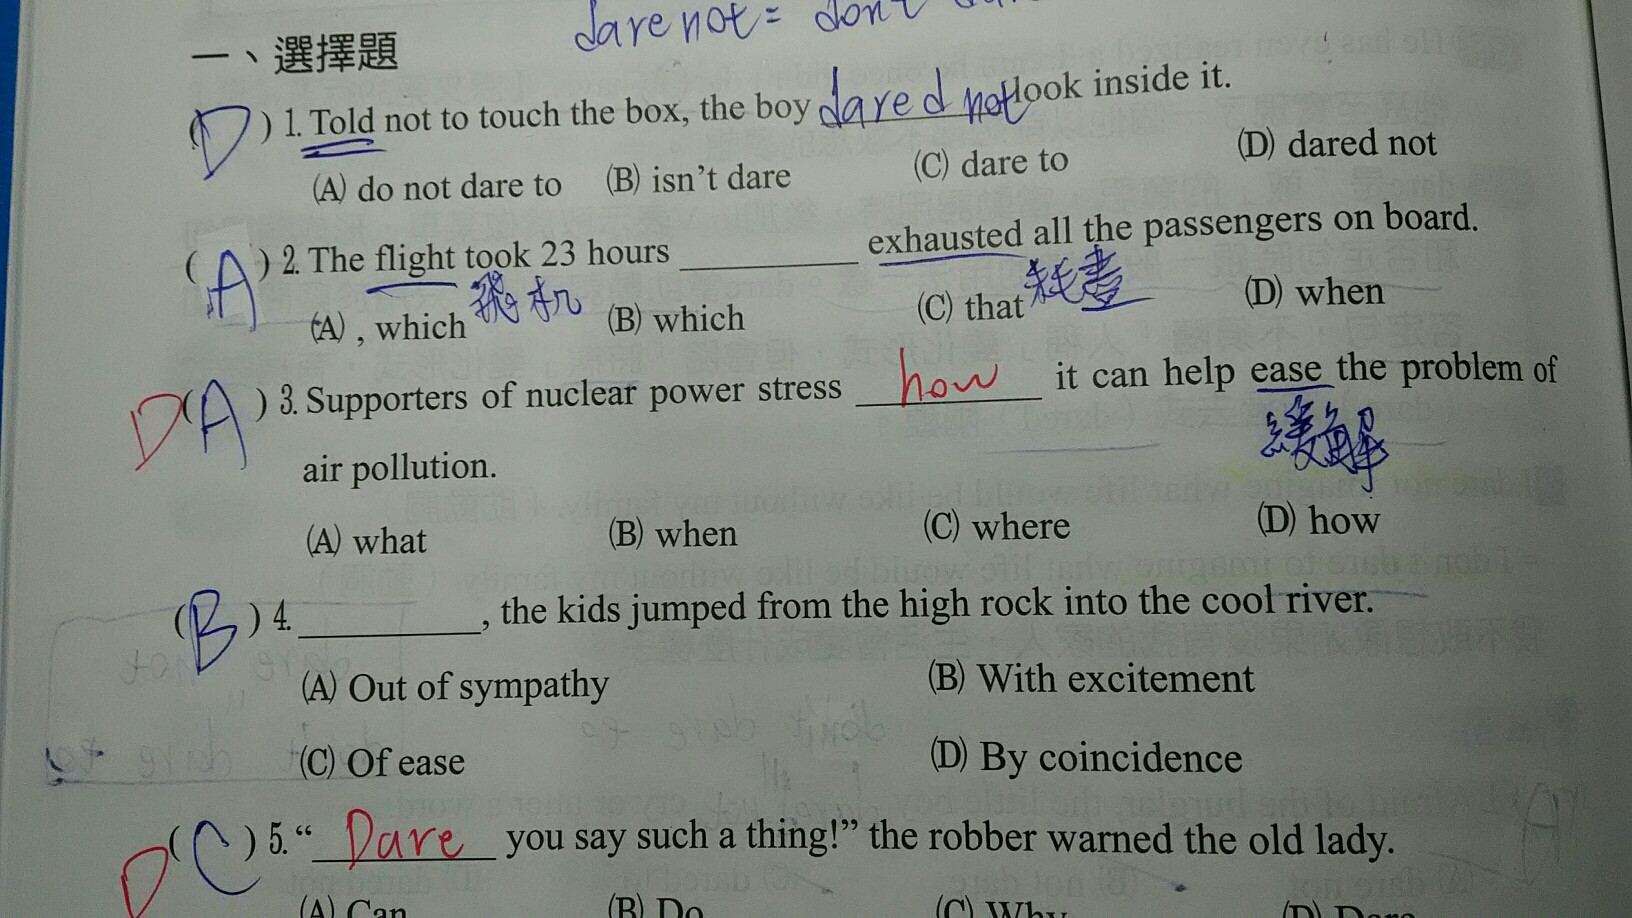 dare not = don't
一、選擇題
(D) 1. Told not to touch the box, the boy dared not look inside it.
(A) do not dare to (B) isn't dare (C) dare to (D) dared not
(A) 2. The flight took 23 hours ________ exhausted all the passengers on board.
飛机 耗盡
(A) , which (B) which (C) that (D) when
D(A) 3. Supporters of nuclear power stress how it can help ease the problem of
緩解
air pollution.
(A) what (B) when (C) where (D) how
(B) 4. ________, the kids jumped from the high rock into the cool river.
(A) Out of sympathy (B) With excitement
(C) Of ease (D) By coincidence
D(C) 5. “Dare you say such a thing!” the robber warned the old lady.
(A) Can (B) Do (C) Why (D) Dare